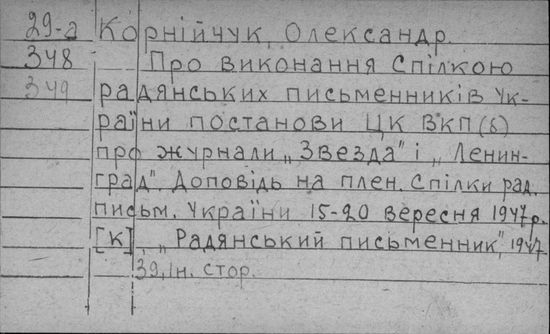 29-а Корнійчук, Олександр.
348 Про виконання Спілкою
349 радянських письменників Ук-
раїни постанови ЦК ВКП(б)
про журнали „Звезда" і „Ленин-
град". Доповідь на плен. Спілки рад.
письм. України 15-20 вересня 1947 р.
[К], „Радянський письменник", 1947
39, ІН. стор.